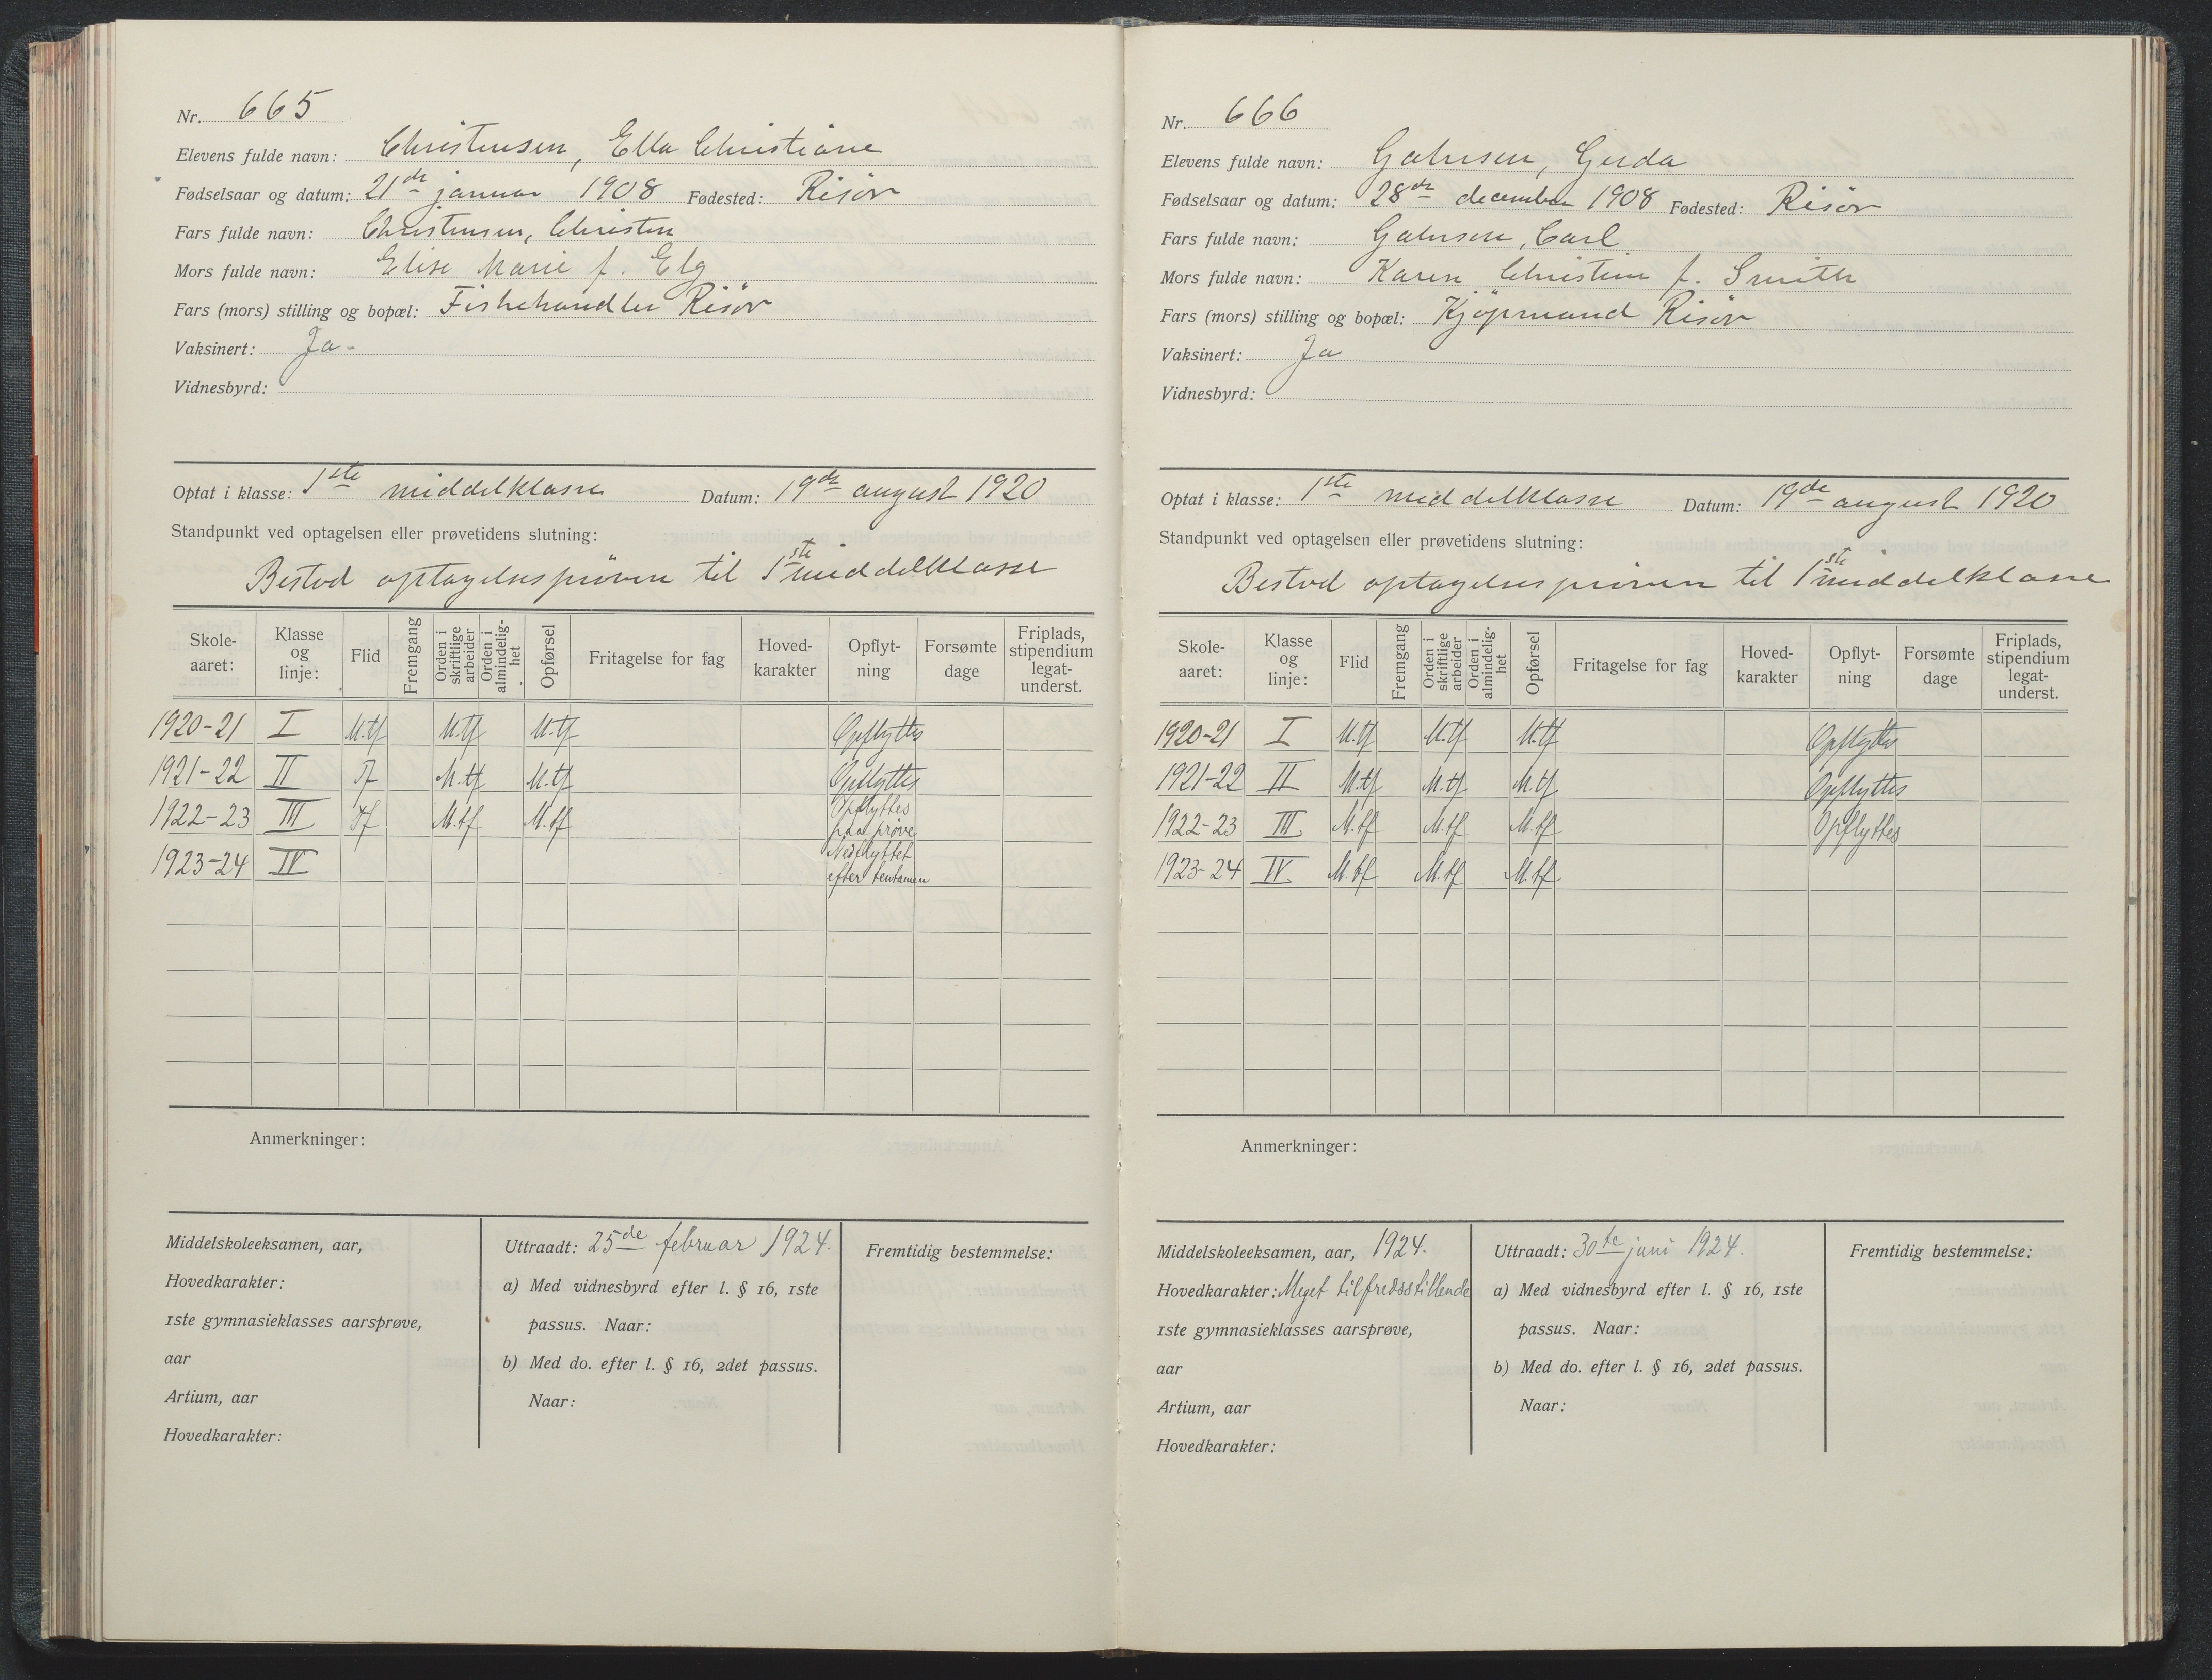 Nr. 665
Elevens fulde navn: Christensen, Ella Christiane
Fødselsaar og datum: 21de januar 1908 Fødested: Risör
Fars fulde navn: Christensen, Christen
Mors fulde navn: Elise Marie f. Elg
Fars (mors) stilling og bopæl: Fiskehandler Risör
Vaksinert: Ja -
Vidnesbyrd:
Optat i klasse: 1ste middelklasse Datum: 19de august 1920
Standpunkt ved optagelsen eller prøvetidens slutning:
Bestod optagelsespröven til 1ste middelklasse
Skole-aaret: Klasse og linje: Flid Fremgang Orden i skriftlige arbeider Orden i almindelig-het Opførsel Fritagelse for fag Hoved-karakter Opflyt-ning Forsømte dage Friplads, stipendium legat-underst.
1920-21 I M.tf M.tf M.tf Opflyttes
1921-22 II Tf M.tf M.tf Opflyttes
1922-23 III Tf M.tf M.tf Opflyttes paa prøve
1923-24 IV Nedflyttet efter tentamen
Anmerkninger:
Middelskoleeksamen, aar,
Hovedkarakter:
1ste gymnasieklasses aarsprøve,
aar
Artium, aar
Hovedkarakter:
Uttraadt: 25de februar 1924.
a) Med vidnesbyrd efter l. § 16, 1ste
passus. Naar:
b) Med do. efter l. § 16, 2det passus.
Naar:
Fremtidig bestemmelse:
Nr. 666
Elevens fulde navn: Gahrsen, Gerda
Fødselsaar og datum: 28de december 1908 Fødested: Risör
Fars fulde navn: Gahrsen, Carl
Mors fulde navn: Karen Christine f. Smith
Fars (mors) stilling og bopæl: Kjöpmand Risör
Vaksinert: Ja
Vidnesbyrd:
Optat i klasse: 1ste middelklasse Datum: 19de august 1920
Standpunkt ved optagelsen eller prøvetidens slutning:
Bestod optagelsespröven til 1ste middelklasse
Skole-aaret: Klasse og linje: Flid Fremgang Orden i skriftlige arbeider Orden i almindelig-het Opførsel Fritagelse for fag Hoved-karakter Opflyt-ning Forsømte dage Friplads, stipendium legat-underst.
1920-21 I M.tf M.tf M.tf Opflyttes
1921-22 II M.tf M.tf M.tf Opflyttes
1922-23 III M.tf M.tf M.tf Opflyttes
1923-24 IV M.tf M.tf M.tf
Anmerkninger:
Middelskoleeksamen, aar, 1924.
Hovedkarakter: Meget tilfredsstillende
1ste gymnasieklasses aarsprøve,
aar
Artium, aar
Hovedkarakter:
Uttraadt: 30te juni 1924.
a) Med vidnesbyrd efter l. § 16, 1ste
passus. Naar:
b) Med do. efter l. § 16, 2det passus.
Naar:
Fremtidig bestemmelse: